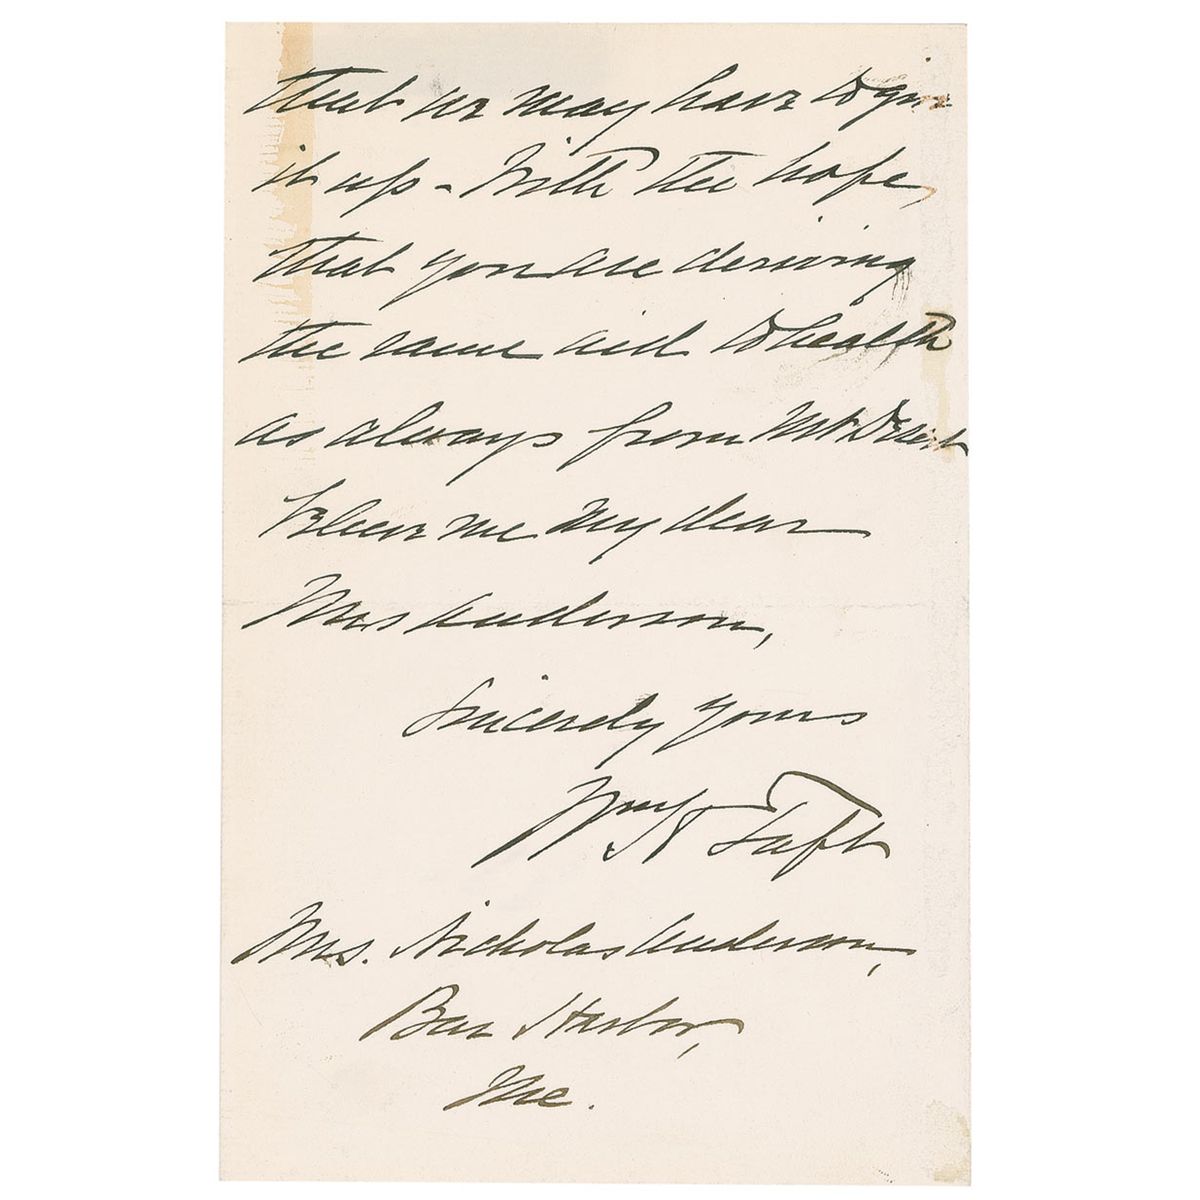 that we may have to give
it up - With the hope,
that you are deriving
the same aid to health
as always from Mt Desert
believe me my dear
Mrs Anderson,
Sincerely yours
Wm H Taft
Mrs. Nicholas Anderson,
Bar Harbor,
Me.